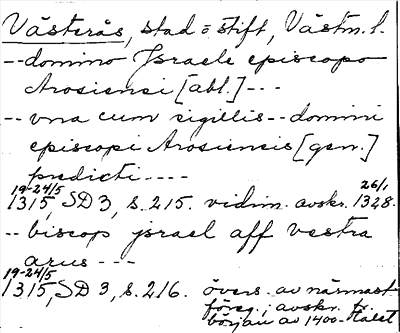 Västerås, stad o stift, Västm. l.
-- domino Israele episcopo
Arosiensi [abl.] ---
-- vna cum sigillis -- domini
episcopi Arosiensis [gen.]
predicti ----
19-24/5 26/1
1315, SD 3, s. 215. vidim. avskr. 1328.
-- biscop jsrael aff vestra
arus ---
19-24/5
1315, SD 3, s. 216. övers. av närmast
föreg. i avskr. fr.
början av 1400-talet